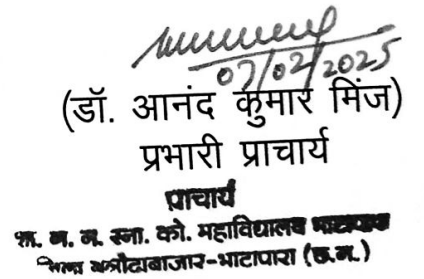 07/02/2025
(डॉ. आनंद कुमार मिंज)
प्रभारी प्राचार्य
प्राचार्य
शा. ग. न. स्ना. को. महाविद्यालय भाटापारा
जिला बलौदाबाजार-भाटापारा (छ.ग.)